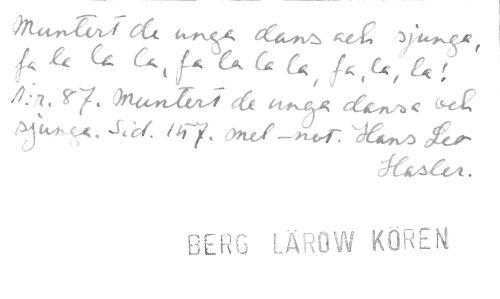 Muntert de unga dans och sjunga,
fa la la la, fa la la la, fa, la, la!
N:r. 87. Muntert de unga dansa och
sjunga. Sid. 157. mel-not. Hans Leo
Hasler.
BERG LÄROW KÖREN